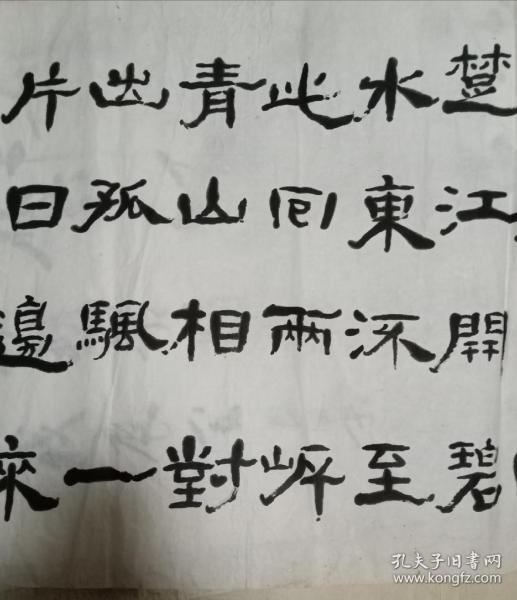 楚江開碧
水東流至
此回兩岸
青山相對
出孤颿一
片日邊來
孔夫子旧书网
www.kongfz.com